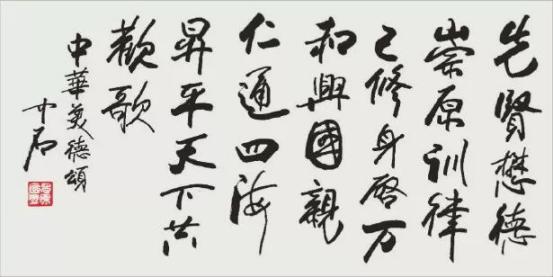 先賢懋德
崇原訓律
己修身啓万
和興國親
仁通四海
昇平天下共
歡歌
中華美德頌
中石